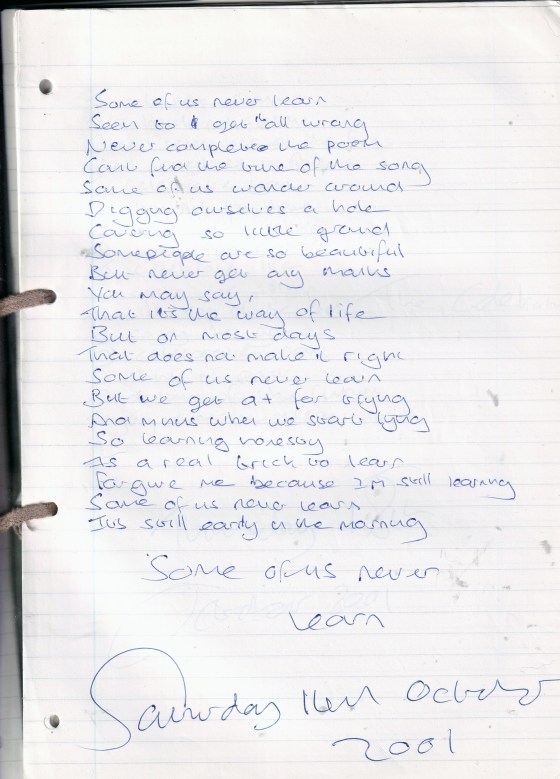 Some of us never learn
Seem to get it all wrong
Never completed the poem
Cant find the tune of the song
Some of us wander around
Digging ourselves a hole
Covering so little ground
Some people are so beautiful
But never get any marks
You may say,
That it's the way of life
But on most days
That does not make it right
Some of us never learn
But we get a + for trying
And minus when we start lying
So learning honesty
Is a real trick to learn
Forgive me because I'm still learning
Some of us never learn
Its still early in the morning
Some of us never
learn
Saturday October
2001